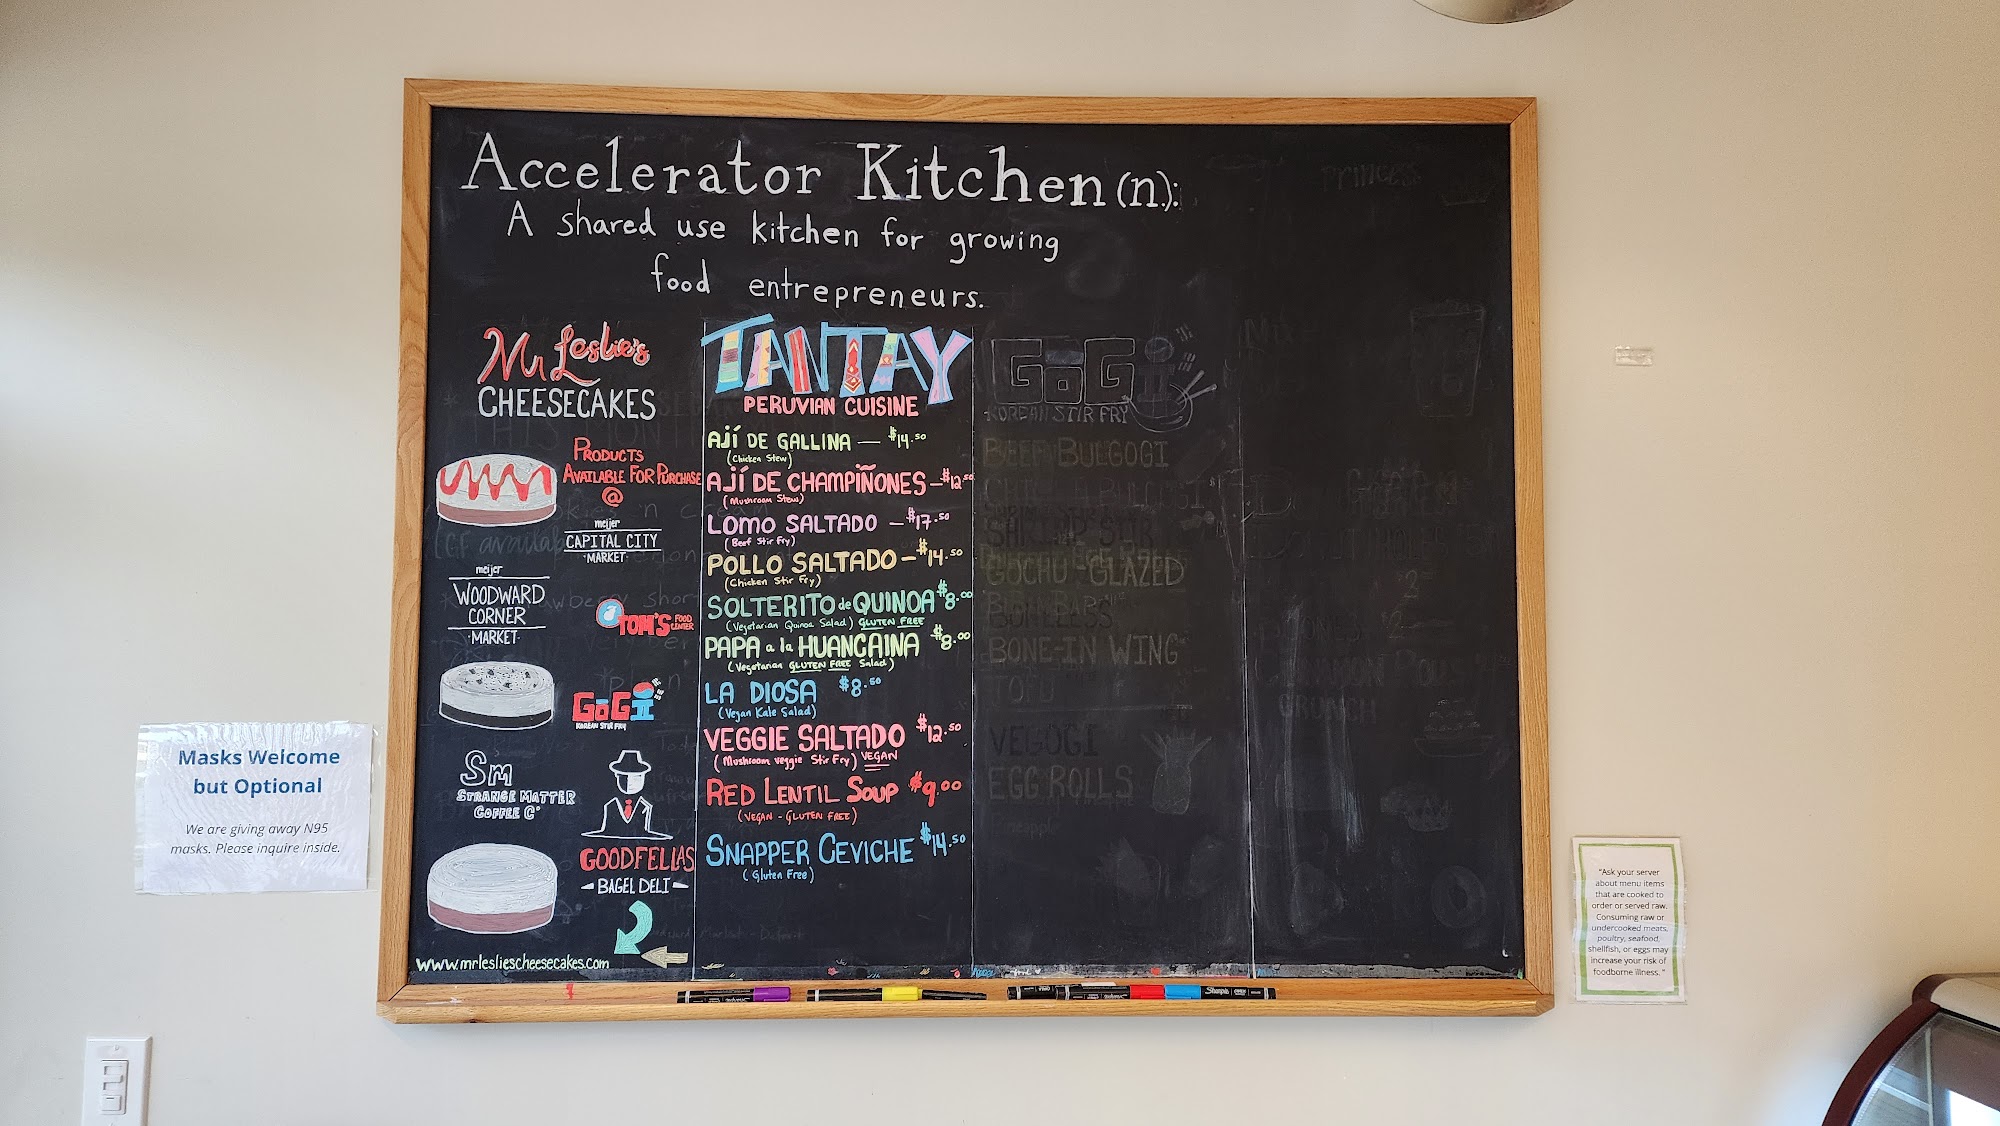 Accelerator Kitchen (n.):
A shared use kitchen for growing
food entrepreneurs.
Mr Leslie's
CHEESECAKES
PRODUCTS
AVAILABLE FOR PURCHASE
@
meijer
CAPITAL CITY
MARKET
meijer
WOODWARD
CORNER
MARKET
TOM'S FOOD CENTER
GOGI
KOREAN STIR FRY
SM
STRANGE MATTER
COFFEE Co
GOODFELLAS
BAGEL DELI
www.mrlesliescheesecakes.com
TANTAY
PERUVIAN CUISINE
AJÍ DE GALLINA — $14.50
(Chicken Stew)
AJÍ DE CHAMPIÑONES — $12.50
(Mushroom Stew)
LOMO SALTADO — $17.50
(Beef Stir Fry)
POLLO SALTADO — $14.50
(Chicken Stir Fry)
SOLTERITO de QUINOA $8.00
(Vegetarian Quinoa Salad) GLUTEN FREE
PAPA a la HUANCAINA $8.00
(Vegetarian GLUTEN FREE Salad)
LA DIOSA $8.50
(Vegan Kale Salad)
VEGGIE SALTADO $12.50
(Mushroom veggie Stir Fry) VEGAN
RED LENTIL SOUP $9.00
(VEGAN - GLUTEN FREE)
SNAPPER CEVICHE $14.50
(Gluten Free)
GOGI
KOREAN STIR FRY
BEEF BULGOGI
GOCHU GLAZED
BONE-IN WING
TOFU
VEGOGI
EGG ROLLS
Princess
Masks Welcome
but Optional
We are giving away N95
masks. Please inquire inside.
"Ask your server
about menu items
that are cooked to
order or served raw.
Consuming raw or
undercooked meats,
poultry, seafood,
shellfish, or eggs may
increase your risk of
foodborne illness."
Sharpie